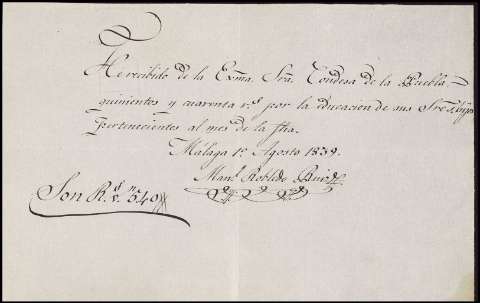 He recibido de la Exma. Sra. Condesa de la Puebla,
quinientos y cuarenta rs. por la educacion de sus tres hijos
pertenecientes al mes de la fha.
Málaga 1º Agosto 1839.
Manl. Robledo
Son Rs. vn. 540